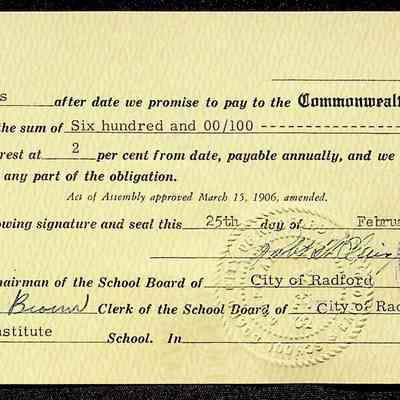 s after date we promise to pay to the Commonwealt
the sum of Six hundred and 00/100 --------------------
rest at 2 per cent from date, payable annually, and we
any part of the obligation.
Act of Assembly approved March 15, 1906, amended.
owing signature and seal this 25th day of Februa
hairman of the School Board of City of Radford
Brown Clerk of the School Board of City of Rad
nstitute School. In